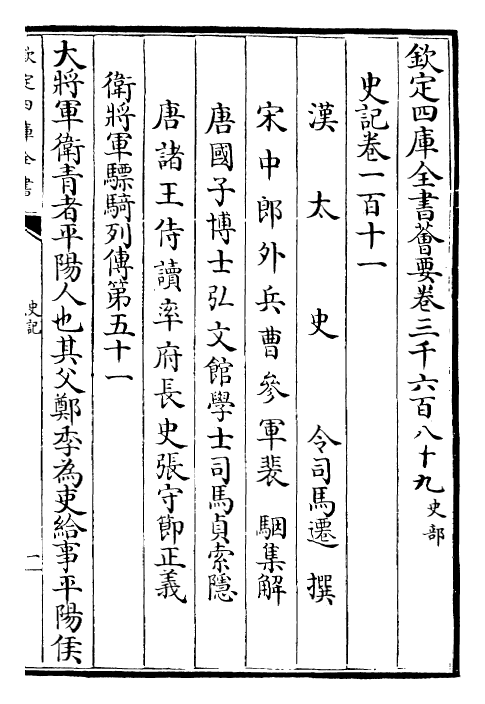 欽定四庫全書薈要卷三千六百八十九史部
史記卷一百十一
漢太史令司馬遷撰
宋中郎外兵曹參軍裴駰集解
唐國子博士弘文館學士司馬貞索隱
唐諸王侍讀率府長史張守節正義
衛將軍驃騎列傳第五十一
大將軍衛青者平陽人也其父鄭季為吏給事平陽侯
欽定四庫全書
史記
一